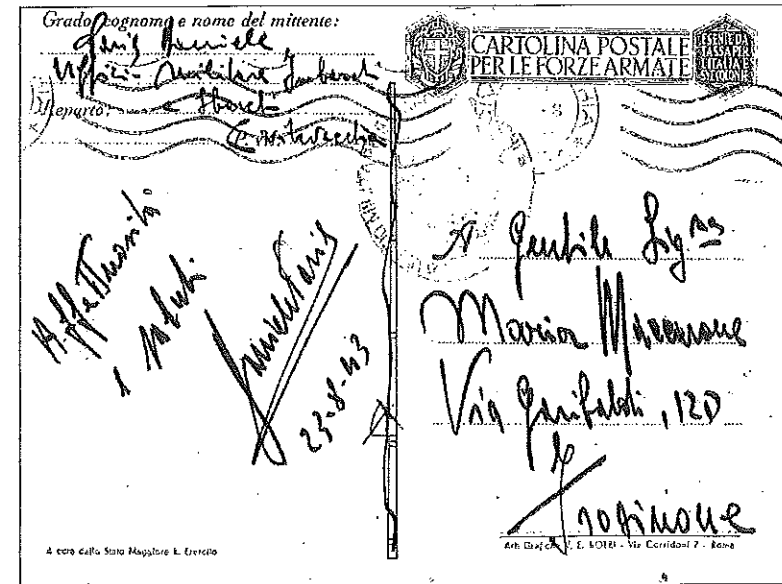 Grado, cognome e nome del mittente:
Paris Daniele
Ufficio Militare Imbarchi
e Sbarchi
Reparto:
Civitavecchia
CARTOLINA POSTALE
PER LE FORZE ARMATE
ESENTE DA
TASSA PER
L'ITALIA E
Affettuosità
e saluti
Daniele Paris
23-8-43
A Gentile Sig.na
Maria
Via Garibaldi, 120
Frosinone
A cura dello Stato Maggiore R. Esercito
Arti Grafiche - Via Corridoni 7 - Roma